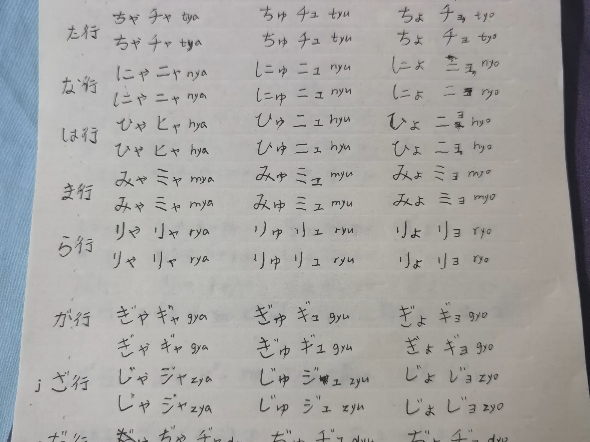 た行 ちゃ チャ tya ちゅ チュ tyu ちょ チョ tyo
ちゃ チャ tya ちゅ チュ tyu ちょ チョ tyo
な行 にゃ ニャ nya にゅ ニュ nyu にょ ニョ nyo
にゃ ニャ nya にゅ ニュ nyu にょ ニョ nyo
は行 ひゃ ヒャ hya ひゅ ニュ hyu ひょ ニョ hyo
ひゃ ヒャ hya ひゅ ニュ hyu ひょ ニョ hyo
ま行 みゃ ミャ mya みゅ ミュ myu みょ ミョ myo
みゃ ミャ mya みゅ ミュ myu みょ ミョ myo
ら行 りゃ リャ rya りゅ リュ ryu りょ リョ ryo
りゃ リャ rya りゅ リュ ryu りょ リョ ryo
が行 ぎゃ ギャ gya ぎゅ ギュ gyu ぎょ ギョ gyo
ぎゃ ギャ gya ぎゅ ギュ gyu ぎょ ギョ gyo
j ざ行 じゃ ジャ zya じゅ ジュ zyu じょ じョ zyo
じゃ ジャ zya じゅ ジュ zyu じょ じョ zyo